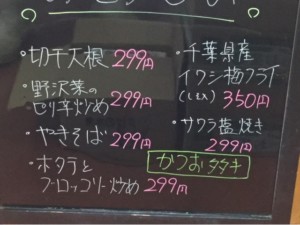 ・切干大根 299円
・野沢菜の
ピリ辛炒め 299円
・やきそば 299円
・ホタテと
ブロッコリー炒め 299円
・千葉県産
イワシ梅フライ
350円
・サワラ塩焼き
299円
かつおタタキ